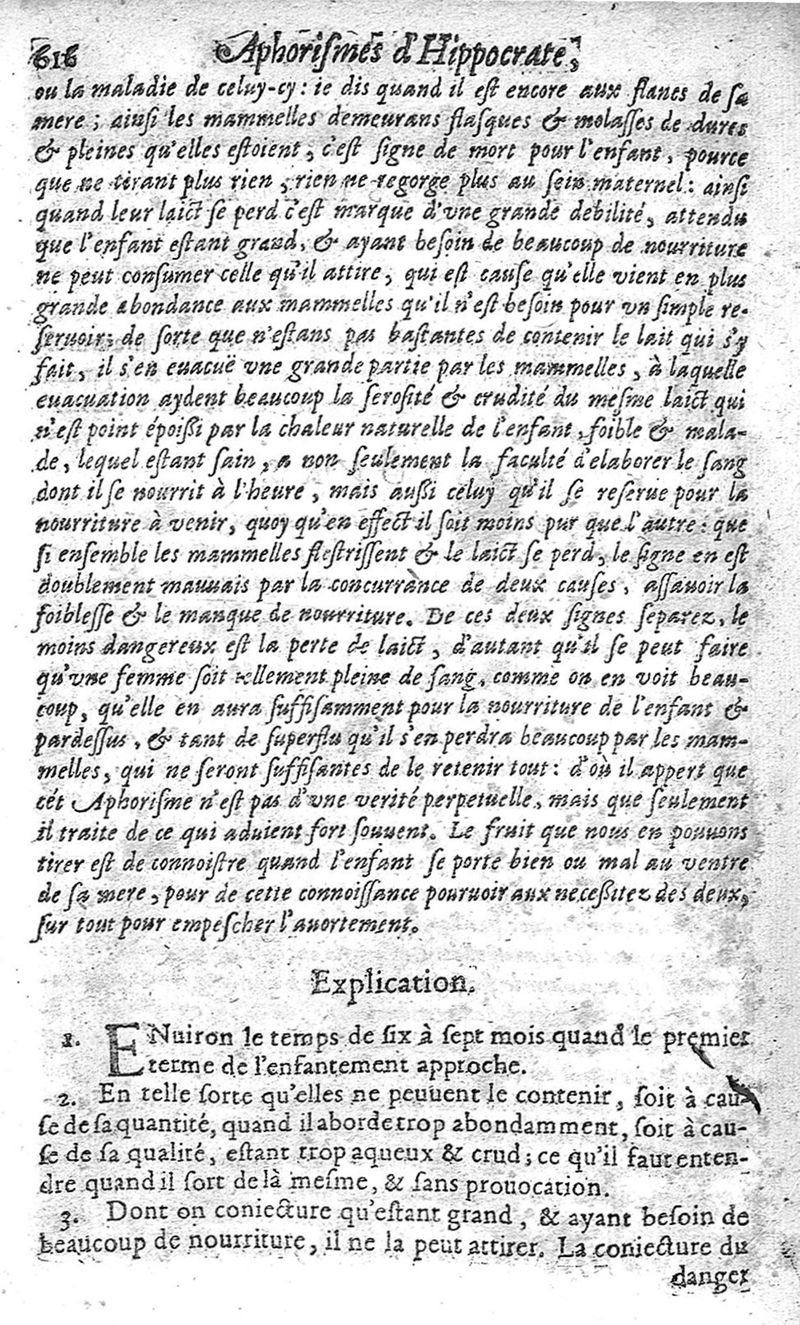 616 Aphorismes d'Hippocrate,
ou la maladie de celuy-cy: ie dis quand il est encore aux flancs de sa
mere; ainsi les mammelles demeurans flasques & molasses de dures
& pleines qu'elles estoient, c'est signe de mort pour l'enfant, pource
que ne tirant plus rien, rien ne regorge plus au sein maternel: ainsi
quand leur laict se perd c'est marque d'vne grande debilité, attendu
que l'enfant estant grand, & ayant besoin de beaucoup de nourriture
ne peut consumer celle qu'il attire, qui est cause qu'elle vient en plus
grande abondance aux mammelles qu'il n'est besoin pour vn simple re-
seruoir: de sorte que n'estans pas bastantes de contenir le lait qui s'y
fait, il s'en euacuë vne grande partie par les mammelles, à laquelle
euacuation aydent beaucoup la serosité & crudité du mesme laict qui
n'est point époissi par la chaleur naturelle de l'enfant, foible & mala-
de, lequel estant sain, a non seulement la faculté d'elaborer le sang
dont il se nourrit à l'heure, mais aussi celuy qu'il se reserue pour la
nourriture à venir, quoy qu'en effect il soit moins pur que l'autre: que
si ensemble les mammelles flestrissent & le laict se perd, le signe en est
doublement mauuais par la concurrance de deux causes, assauoir la
foiblesse & le manque de nourriture. De ces deux signes separez, le
moins dangereux est la perte de laict, d'autant qu'il se peut faire
qu'vne femme soit tellement pleine de sang, comme on en voit beau-
coup, qu'elle en aura suffisamment pour la nourriture de l'enfant &
pardessus, & tant de superflu qu'il s'en perdra beaucoup par les mam-
melles, qui ne seront suffisantes de le retenir tout: d'où il appert que
cét Aphorisme n'est pas d'vne verité perpetuelle, mais que seulement
il traite de ce qui aduient fort souuent. Le fruit que nous en pouuons
tirer est de connoistre quand l'enfant se porte bien ou mal au ventre
de sa mere, pour de cette connoissance pouruoir aux necessitez des deux,
sur tout pour empescher l'auortement.
Explication.
1. ENuiron le temps de six à sept mois quand le premier
terme de l'enfantement approche.
2. En telle sorte qu'elles ne peuuent le contenir, soit à cau-
se de sa quantité, quand il aborde trop abondamment, soit à cau-
se de sa qualité, estant trop aqueux & crud; ce qu'il faut enten-
dre quand il sort de là mesme, & sans prouocation.
3. Dont on coniecture qu'estant grand, & ayant besoin de
beaucoup de nourriture, il ne la peut attirer. La coniecture du
danger